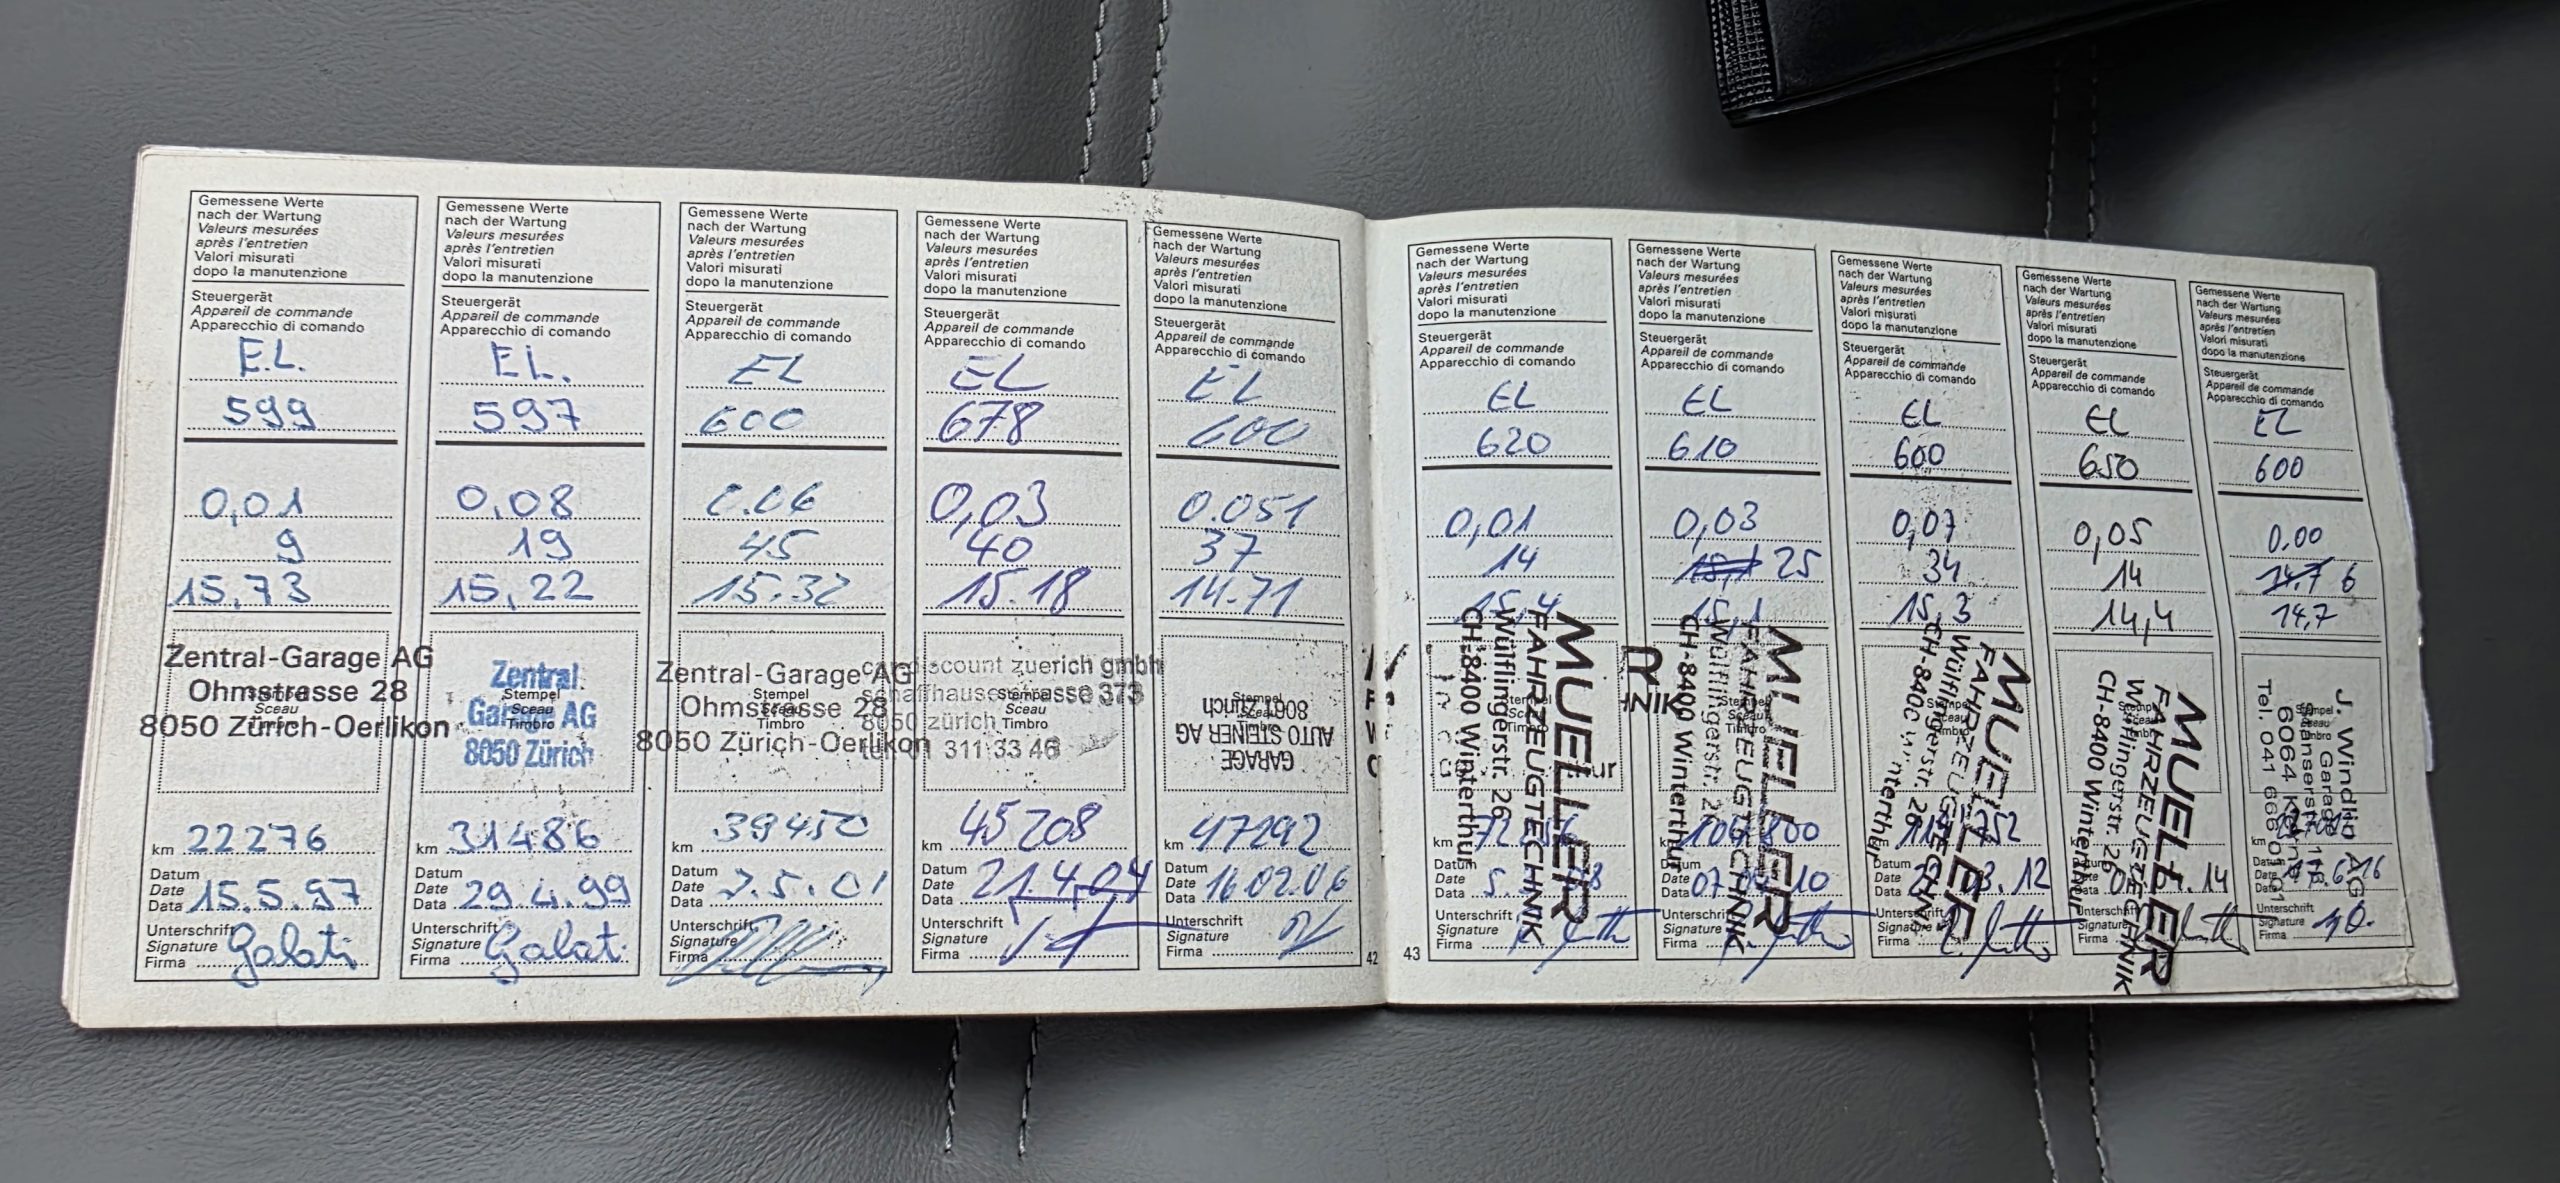 Gemessene Werte
nach der Wartung
Valeurs mesurées
après l'entretien
Valori misurati
dopo la manutenzione
Steuergerät
Appareil de commande
Apparecchio di comando
E.L.
599
0,01
9
15,73
Zentral-Garage AG
Ohmstrasse 28
8050 Zürich-Oerlikon
Stempel
Sceau
Timbro
km 22276
Datum
Date
Data 15.5.97
Unterschrift
Signature
Firma Galati
Gemessene Werte
nach der Wartung
Valeurs mesurées
après l'entretien
Valori misurati
dopo la manutenzione
Steuergerät
Appareil de commande
Apparecchio di comando
EL.
597
0,08
19
15,22
Zentral
Garage AG
8050 Zürich
Stempel
Sceau
Timbro
km 31486
Datum
Date
Data 29.4.99
Unterschrift
Signature
Firma Galati
Gemessene Werte
nach der Wartung
Valeurs mesurées
après l'entretien
Valori misurati
dopo la manutenzione
Steuergerät
Appareil de commande
Apparecchio di comando
EL
600
0.06
45
15.32
Zentral-Garage AG
Ohmstrasse 28
8050 Zürich-Oerlikon
Stempel
Sceau
Timbro
km 39450
Datum
Date
Data 2.5.01
Unterschrift
Signature
Firma
Gemessene Werte
nach der Wartung
Valeurs mesurées
après l'entretien
Valori misurati
dopo la manutenzione
Steuergerät
Appareil de commande
Apparecchio di comando
EL
678
0,03
40
15.18
discount zuerich gmbh
schaffhauserstrasse 373
8050 zürich
311 33 46
Stempel
Sceau
Timbro
km 45208
Datum
Date
Data 21.4.04
Unterschrift
Signature
Firma
Gemessene Werte
nach der Wartung
Valeurs mesurées
après l'entretien
Valori misurati
dopo la manutenzione
Steuergerät
Appareil de commande
Apparecchio di comando
EL
600
0.051
37
14.71
GARAGE
AUTO STEINER AG
Zürich
Stempel
Sceau
Timbro
km 47292
Datum
Date
Data 16.02.06
Unterschrift
Signature
Firma
42
Gemessene Werte
nach der Wartung
Valeurs mesurées
après l'entretien
Valori misurati
dopo la manutenzione
Steuergerät
Appareil de commande
Apparecchio di comando
EL
620
0,01
14
15,4
MUELLER
FAHRZEUGTECHNIK
Wülflingerstr. 26
CH-8400 Winterthur
km
Datum
Date
Data
Unterschrift
Signature
Firma
43
Gemessene Werte
nach der Wartung
Valeurs mesurées
après l'entretien
Valori misurati
dopo la manutenzione
Steuergerät
Appareil de commande
Apparecchio di comando
EL
610
0,03
25
15,1
MUELLER
FAHRZEUGTECHNIK
Wülflingerstr. 26
CH-8400 Winterthur
Stempel
Sceau
Timbro
km
Datum
Date
Data
Unterschrift
Signature
Firma
Gemessene Werte
nach der Wartung
Valeurs mesurées
après l'entretien
Valori misurati
dopo la manutenzione
Steuergerät
Appareil de commande
Apparecchio di comando
EL
600
0,07
34
15,3
MUELLER
FAHRZEUGTECHNIK
Wülflingerstr. 26
CH-8400 Winterthur
km
Datum
Date
Data
Unterschrift
Signature
Firma
Gemessene Werte
nach der Wartung
Valeurs mesurées
après l'entretien
Valori misurati
dopo la manutenzione
Steuergerät
Appareil de commande
Apparecchio di comando
EL
650
0,05
14
14,4
MUELLER
FAHRZEUGTECHNIK
Wülflingerstr. 26
CH-8400 Winterthur
Datum
Data
Unterschrift
Signature
Firma
Gemessene Werte
nach der Wartung
Valeurs mesurées
après l'entretien
Valori misurati
dopo la manutenzione
Steuergerät
Appareil de commande
Apparecchio di comando
EL
600
0.00
14,7 6
14,7
J. Windlin AG
Garage
6064 Kerns
Tel. 041 66
Stempel
Sceau
Timbro
km
Datum
Date
Data 17.6.16
Unterschrift
Signature
Firma